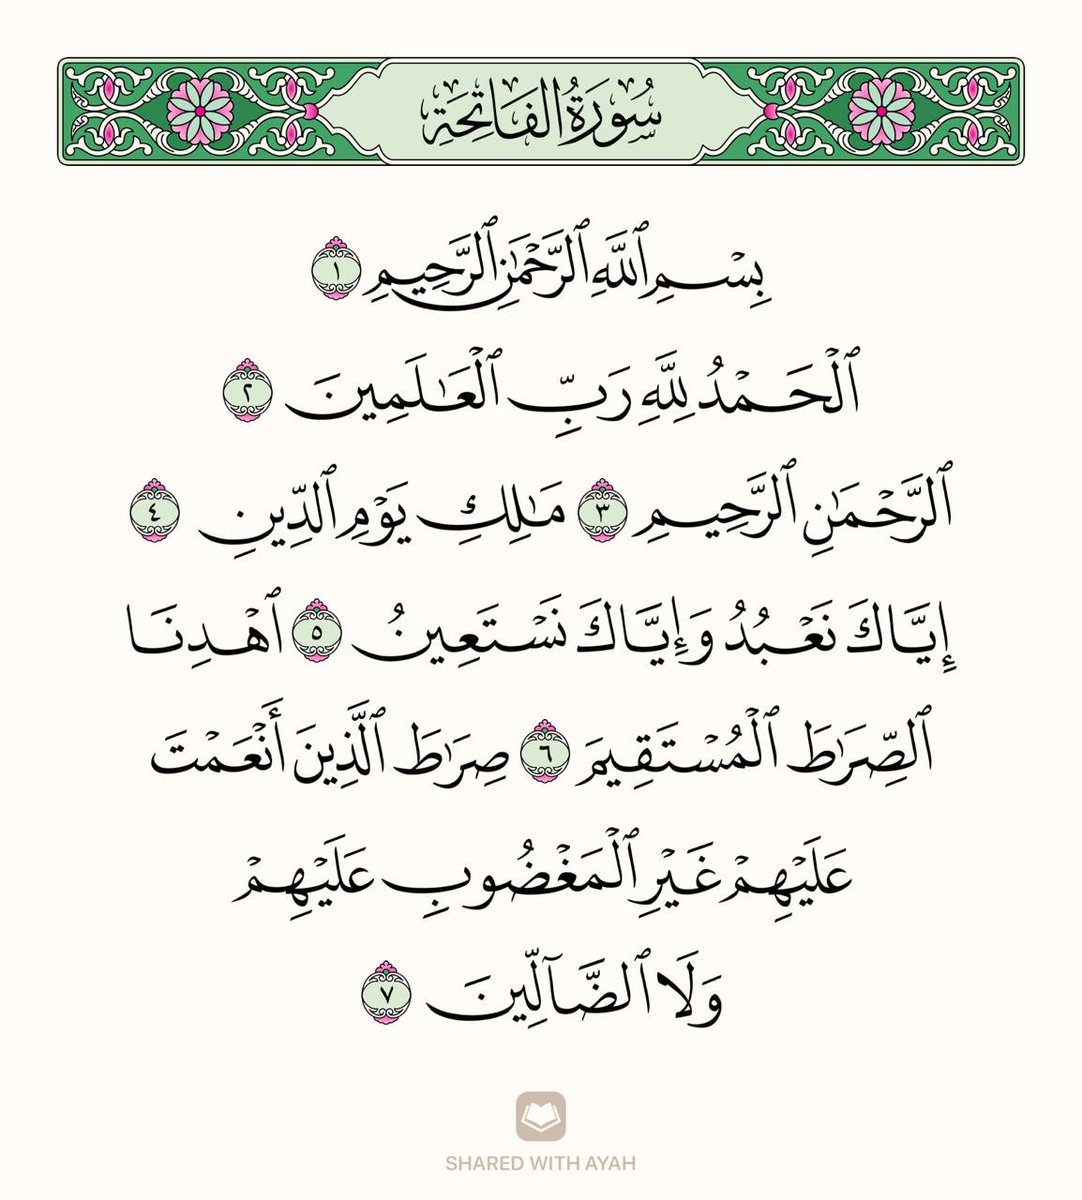 سُورَةُ الفَاتِحَةِ
بِسْمِ ٱللَّهِ ٱلرَّحْمَٰنِ ٱلرَّحِيمِ ١
ٱلْحَمْدُ لِلَّهِ رَبِّ ٱلْعَٰلَمِينَ ٢
ٱلرَّحْمَٰنِ ٱلرَّحِيمِ ٣ مَٰلِكِ يَوْمِ ٱلدِّينِ ٤
إِيَّاكَ نَعْبُدُ وَإِيَّاكَ نَسْتَعِينُ ٥ ٱهْدِنَا
ٱلصِّرَٰطَ ٱلْمُسْتَقِيمَ ٦ صِرَٰطَ ٱلَّذِينَ أَنْعَمْتَ
عَلَيْهِمْ غَيْرِ ٱلْمَغْضُوبِ عَلَيْهِمْ
وَلَا ٱلضَّآلِّينَ ٧
SHARED WITH AYAH